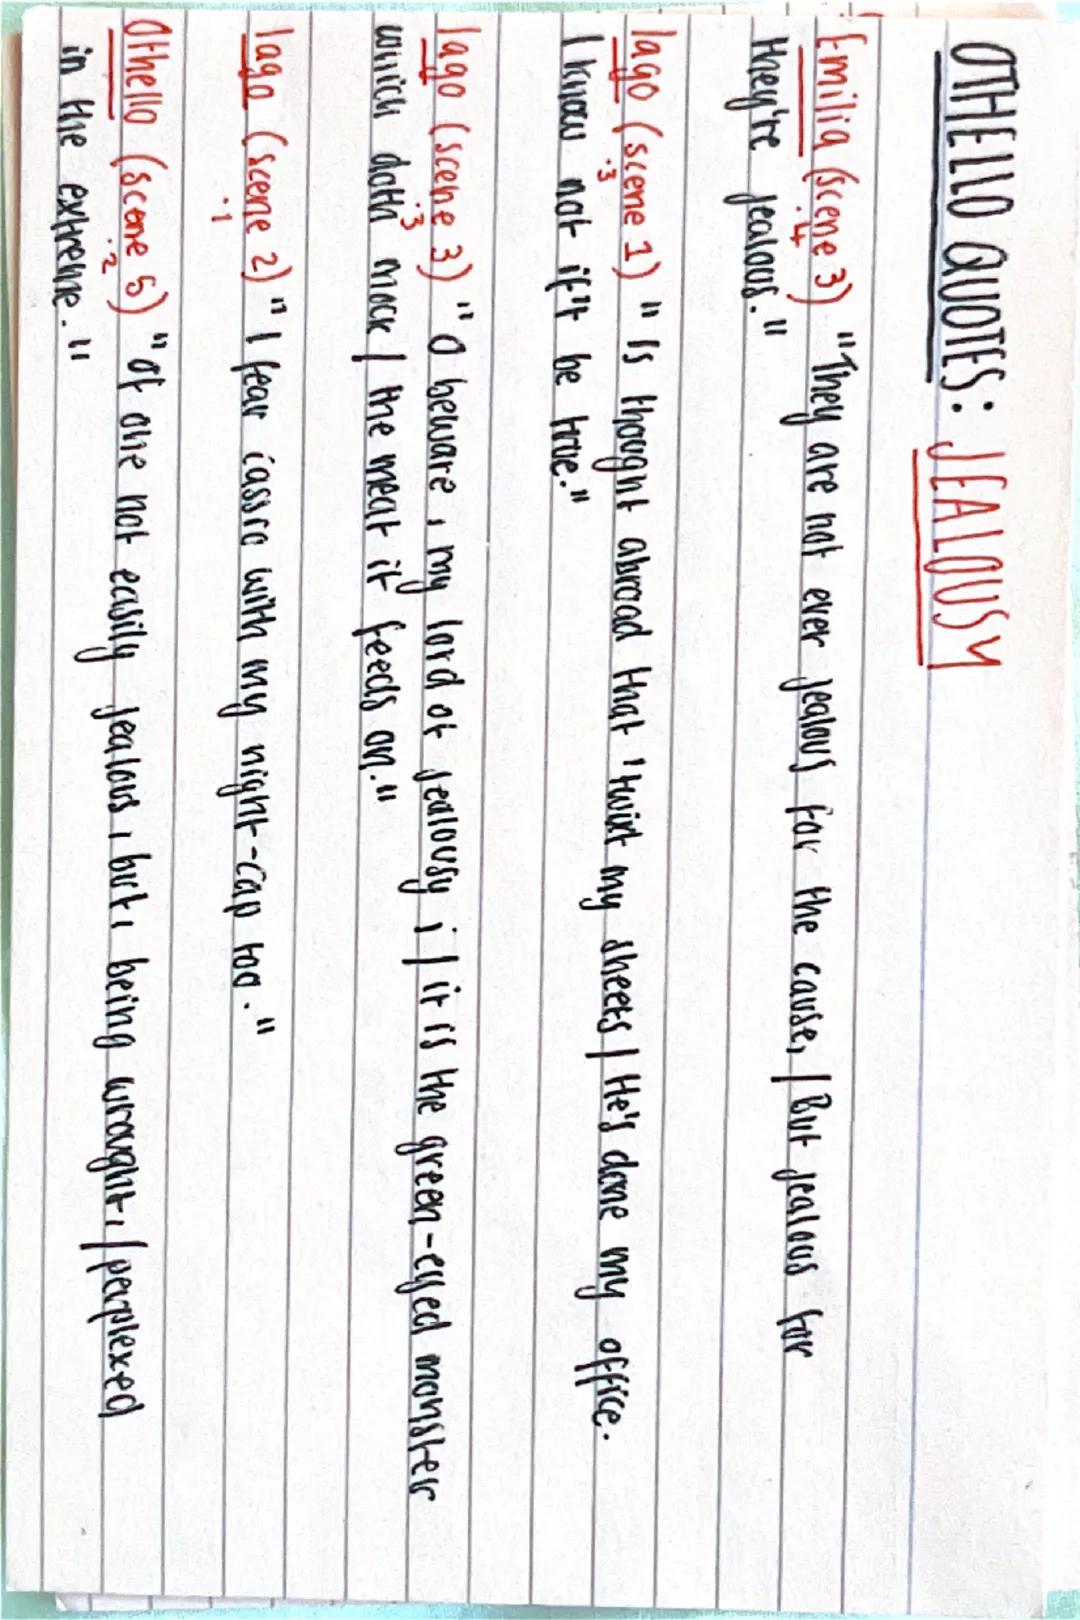 OTHELLO QUOTES: JEALOUSY
Emilia (scene 3.4) "They are not ever jealous for the cause, / But jealous for
they're jealous."
Iago (scene 1.3) "Is thought abroad that 'twixt my sheets / He's done my office.
I know not if't be true."
Iago (scene 3.3) "O beware, my lord of jealousy; / it is the green-eyed monster
which doth mock / the meat it feeds on."
Iago (scene 2.1) "I fear cassio with my night-cap too."
Othello (scene 5.2) "of one not easily jealous, but, being wrought, / perplexed
in the extreme."